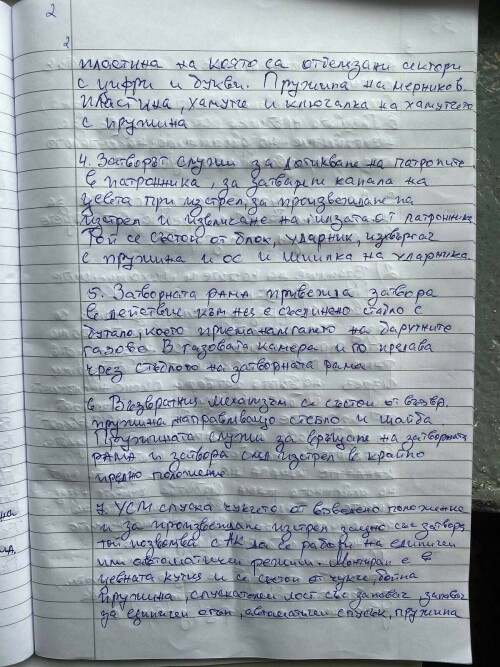 2
2
пластина на която са отбелязани сектори
с цифри и букви. Пружина на мерников.
пластина, хамутче и ключалка на хамутчето
с пружина
4. Затворът служи за дотикване на патроните
в патронника, за затваряне канала на
цевта при изстрел, за произвеждане на
изстрел и извличане на гилзата от патронника
Той се състои от блок, ударник, изхвъргач
с пружина и ос и шпилка на ударника.
5. Затворната рама привежда затвора
в действие към нея е съединено стебло с
бутало, което приема налягането на барутните
газове. В газовата камера и го предава
чрез стеблото на затворната рама
6 Възвратния механизъм се състои от възвр.
пружина направляващо стебло и шайба
Пружината служи за връщане на затворната
рама и затвора след изстрел в крайно
предно положение
7. УСМ спуска чукчето от взведено положение
и за произвеждане изстрел заедно със затвора
той позволява с АК да се работи на единичен
или автоматичен режим. Монтиран е в
цевната кутия и се състои от чукче, бойна
пружина, спускателен лост със заповач, заповач
за единичен огън, автоматичен спусък, пружина